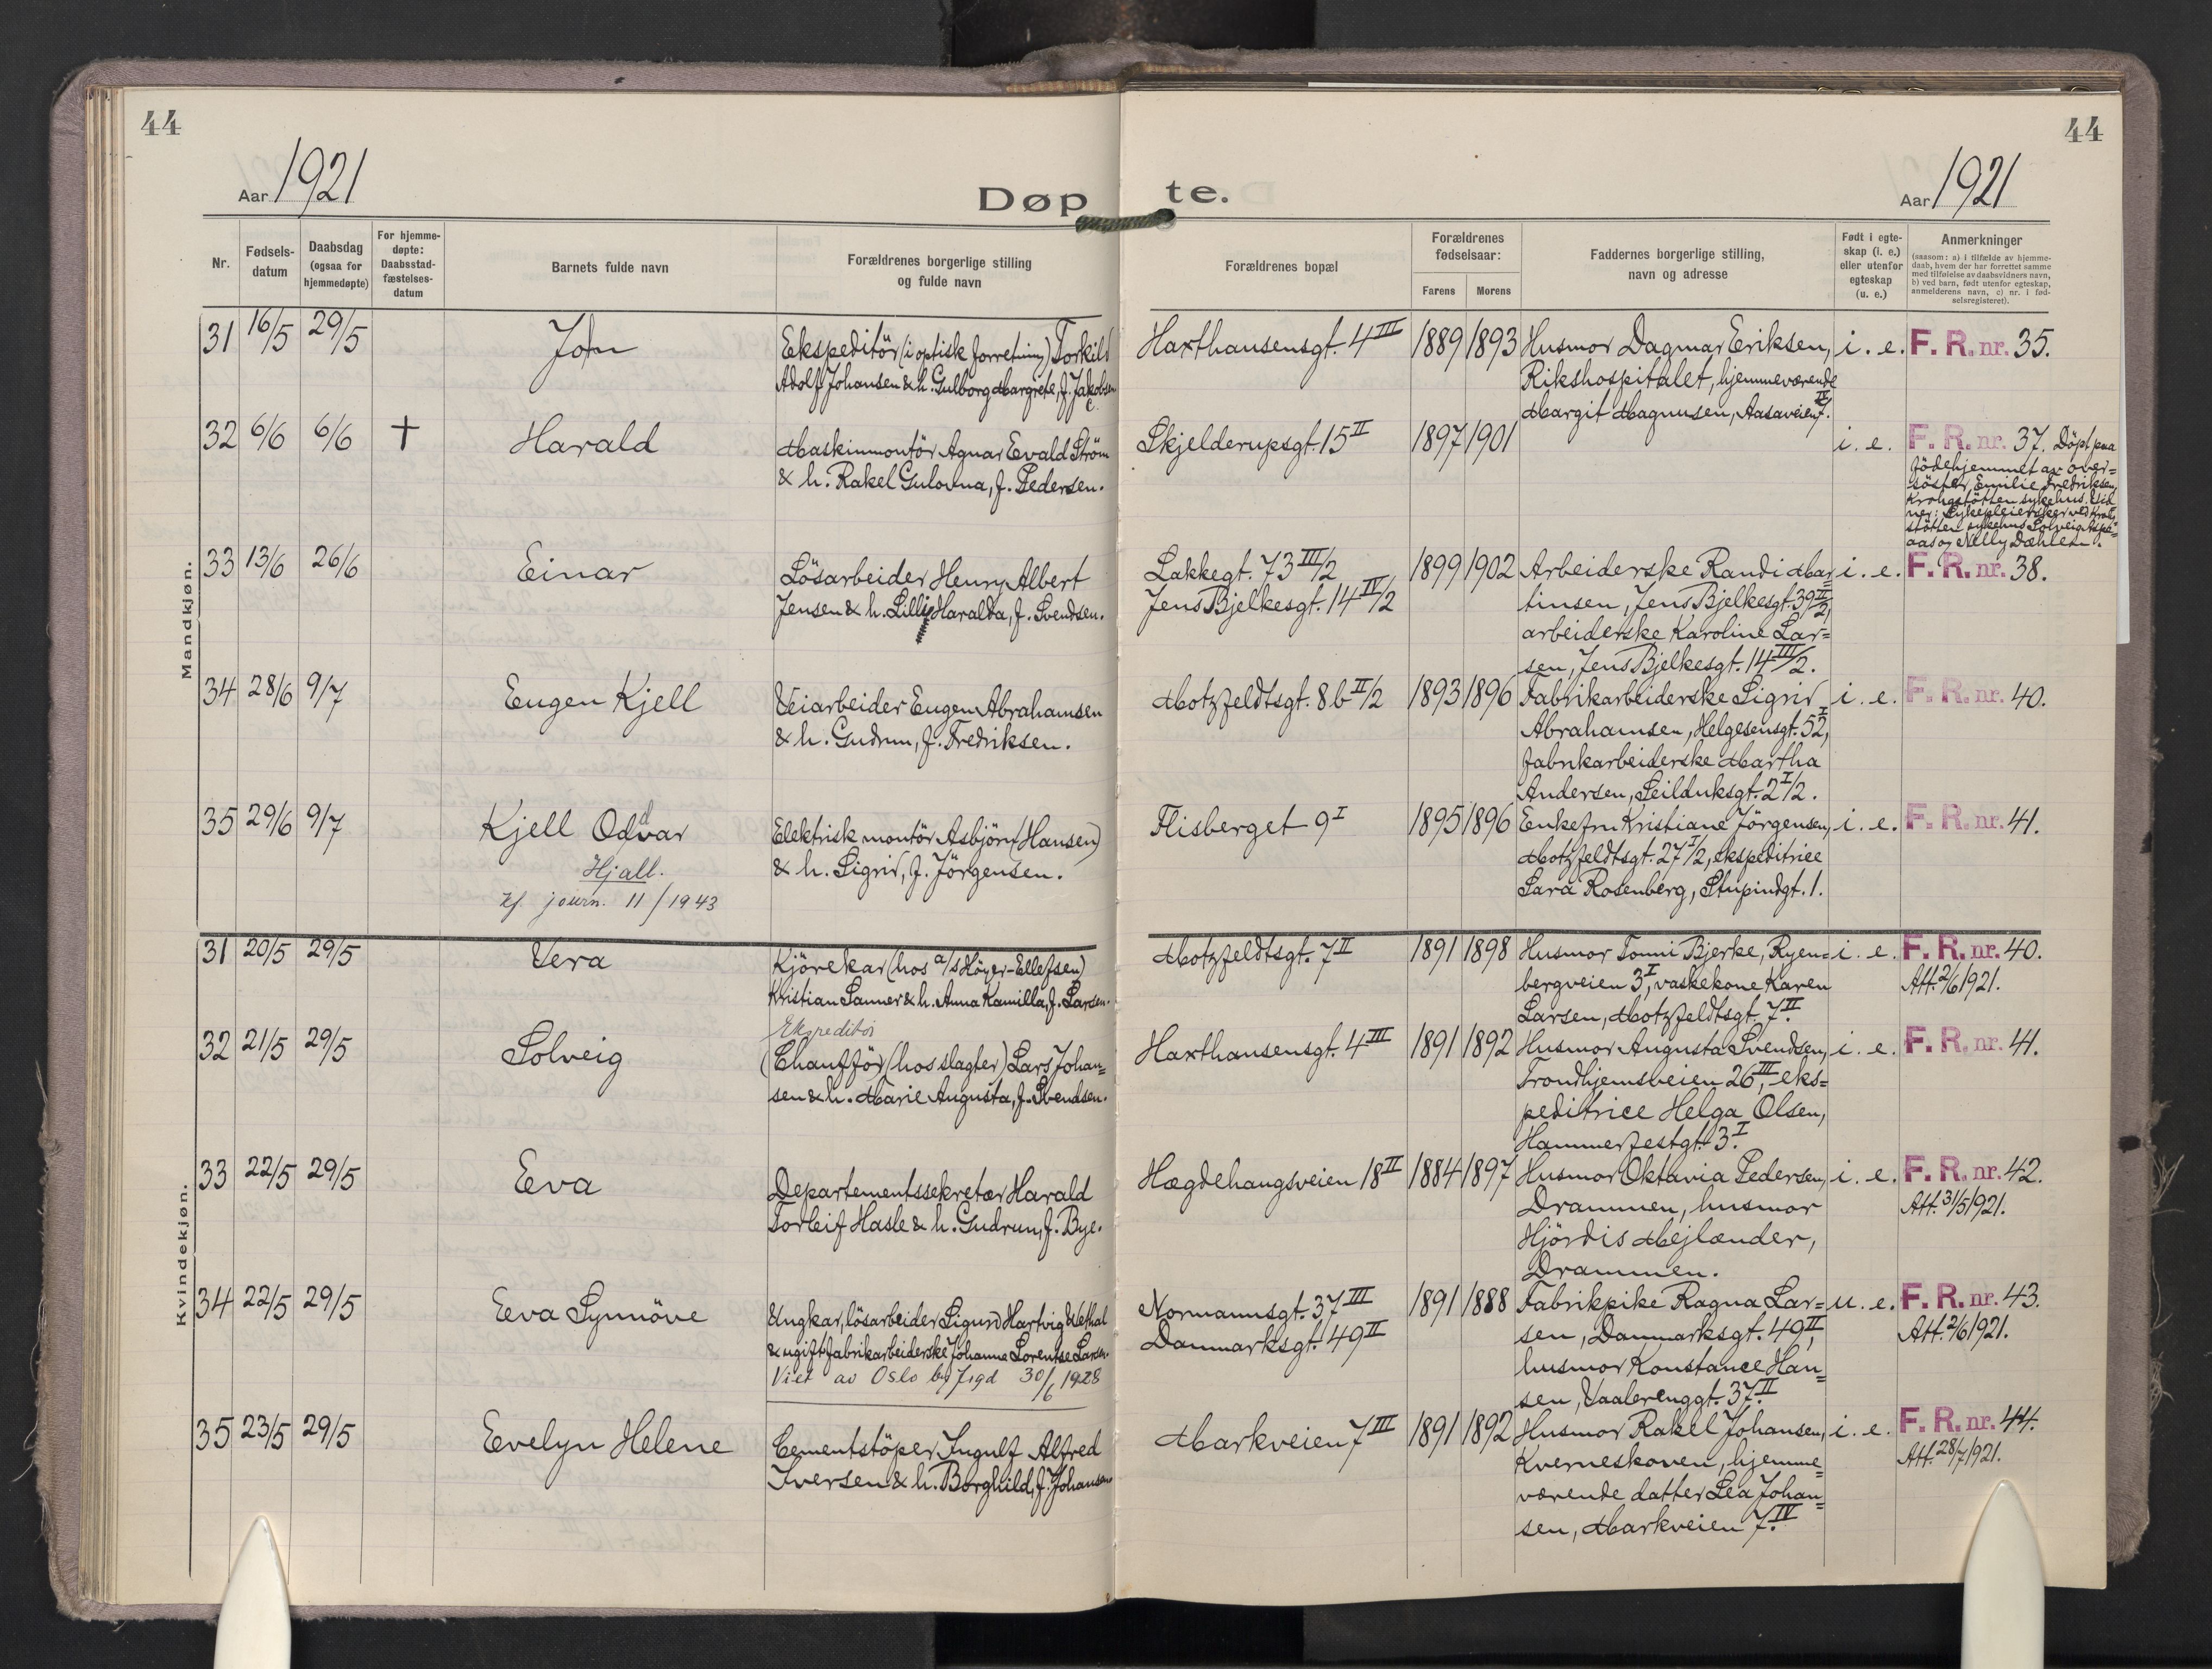 44
44
Aar 1921
Døpte.
Aar 1921
Nr.
Fødsels-
datum
Daabsdag
(ogsaa for
hjemmedøpte)
For hjemme-
døpte:
Daabsstad-
fæstelses-
datum
Barnets fulde navn
Forældrenes borgerlige stilling
og fulde navn
Forældrenes bopæl
Forældrenes
fødselsaar:
Farens Morens
Faddernes borgerlige stilling,
navn og adresse
Født i egte-
skap (i. e.)
eller utenfor
egteskap
(u. e.)
Anmerkninger
(saasom: a) i tilfælde av hjemme-
daab, hvem der har forrettet samme
med tilføielse av daabsvidners navn,
b) ved barn, født utenfor egteskap,
anmelderens navn, c) nr. i fød-
selsregisteret).
Mandkjøn.
31 16/5 29/5 John
Ekspeditör (i optisk forretning) Torkild
Adolf Johansen & h. Gulborg Margrete, f. Jakobsen
Haxthausensgt. 4 III 1889 1893
Husmor Dagmar Eriksen,
Rikshospitalet, hjemmeværende
Margit Magnusen, Aasaveien 7 IV.
i. e. F. R. nr. 35.
32 6/6 6/6 † Harald
Maskinmontör Agnar Evald Ström
& h. Rakel Gulovna, f. Pedersen.
Skjelderupsgt. 15 II 1897 1901
i. e. F. R. nr. 37. Döpt paa
födehjemmet av over-
söster Emilie Fredriksen,
Krohgstötten sykehus. Vid-
ner: Sykepleiersker ved Krohg-
stötten sykehus Solveig Aspe-
aas og Nelly Dæhlen.
33 13/6 26/6 Einar
Lösarbeider Henry Albert
Jensen & h. Lilly Haralda, f. Svendsen.
Lakkegt. 73 III/2
Jens Bjelkesgt. 14 IV/2
1899 1902
Arbeiderske Randi Mar-
tinsen, Jens Bjelkesgt. 39 II/2,
arbeiderske Karoline Lar=
sen, Jens Bjelkesgt. 14 III/2.
i. e. F. R. nr. 38.
34 28/6 9/7 Eugen Kjell
Veiarbeider Eugen Abrahamsen
& h. Gudrun, f. Fredriksen.
Motzfeldtsgt. 8 b II/2 1893 1896
Fabrikarbeiderske Sigrid
Abrahamsen, Helgesensgt. 52 I,
fabrikarbeiderske Martha
Andersen, Seilduksgt. 2 I/2.
i. e. F. R. nr. 40.
35 29/6 9/7 Kjell Oddvar
Hjall.
Kf. journ. 11/1943
Elektrisk montör Asbjörn (Hansen)
& h. Sigrid, f. Jörgensen.
Flisberget 9 I 1895 1896
Enkefru Kristiane Jörgensen,
Motzfeldtsgt. 27 I/2, ekspeditrice
Sara Rosenberg, Stupindgt. 1.
i. e. F. R. nr. 41.
Kvindekjøn.
31 20/5 29/5 Vera
Kjörekar (hos a/s Höyer-Ellefsen)
Kristian Sanner & h. Anna Kamilla, f. Larsen.
Motzfeldtsgt. 7 II 1891 1898
Husmor Tonni Bjerke, Ryen=
bergveien 3 I, vaskekone Karen
Larsen, Motzfeldtsgt. 7 II.
i. e. F. R. nr. 40.
Att. 2/6 1921.
32 21/5 29/5 Solveig
Ekspeditör
(Chauffför (hos slagter) Lars Johan=
sen & h. Marie Augusta, f. Svendsen.
Haxthausensgt. 4 III 1891 1892
Husmor Augusta Svendsen,
Trondhjemsveien 26 III, eks=
peditrice Helga Olsen,
Hammerfestgt. 3 I.
i. e. F. R. nr. 41.
33 22/5 29/5 Eva
Departementssekretær Harald
Torleif Hasle & h. Gudrun, f. Bye.
Hægdehaugsveien 18 II 1884 1897
Husmor Oktavia Pedersen,
Drammen, husmor
Hjördis Mejlænder,
Drammen.
i. e. F. R. nr. 42.
Att. 31/5 1921.
34 22/5 29/5 Eva Synnöve
Ungkar, lösarbeider Sigurd Hartvig Wethal
& ugift fabrikarbeiderske Johanne Lorentse Larsen.
Viet av Oslo byfogd 30/6 1928
Normannsgt. 37 III
Danmarksgt. 49 II
1891 1888
Fabrikpike Ragna Lar=
sen, Danmarksgt. 49 II,
husmor Konstance Han=
sen, Vaalerenggt. 37 II.
u. e. F. R. nr. 43.
Att. 2/6 1921.
35 23/5 29/5 Evelyn Helene
Cementstöper Ingulf Alfred
Iversen & h. Borghild, f. Johansen
Markveien 7 III 1891 1892
Husmor Rakel Johansen,
Kverneskoven, hjemme=
værende datter Lea Johan=
sen, Markveien 7 IV.
i. e. F. R. nr. 44.
Att. 28/7 1921.